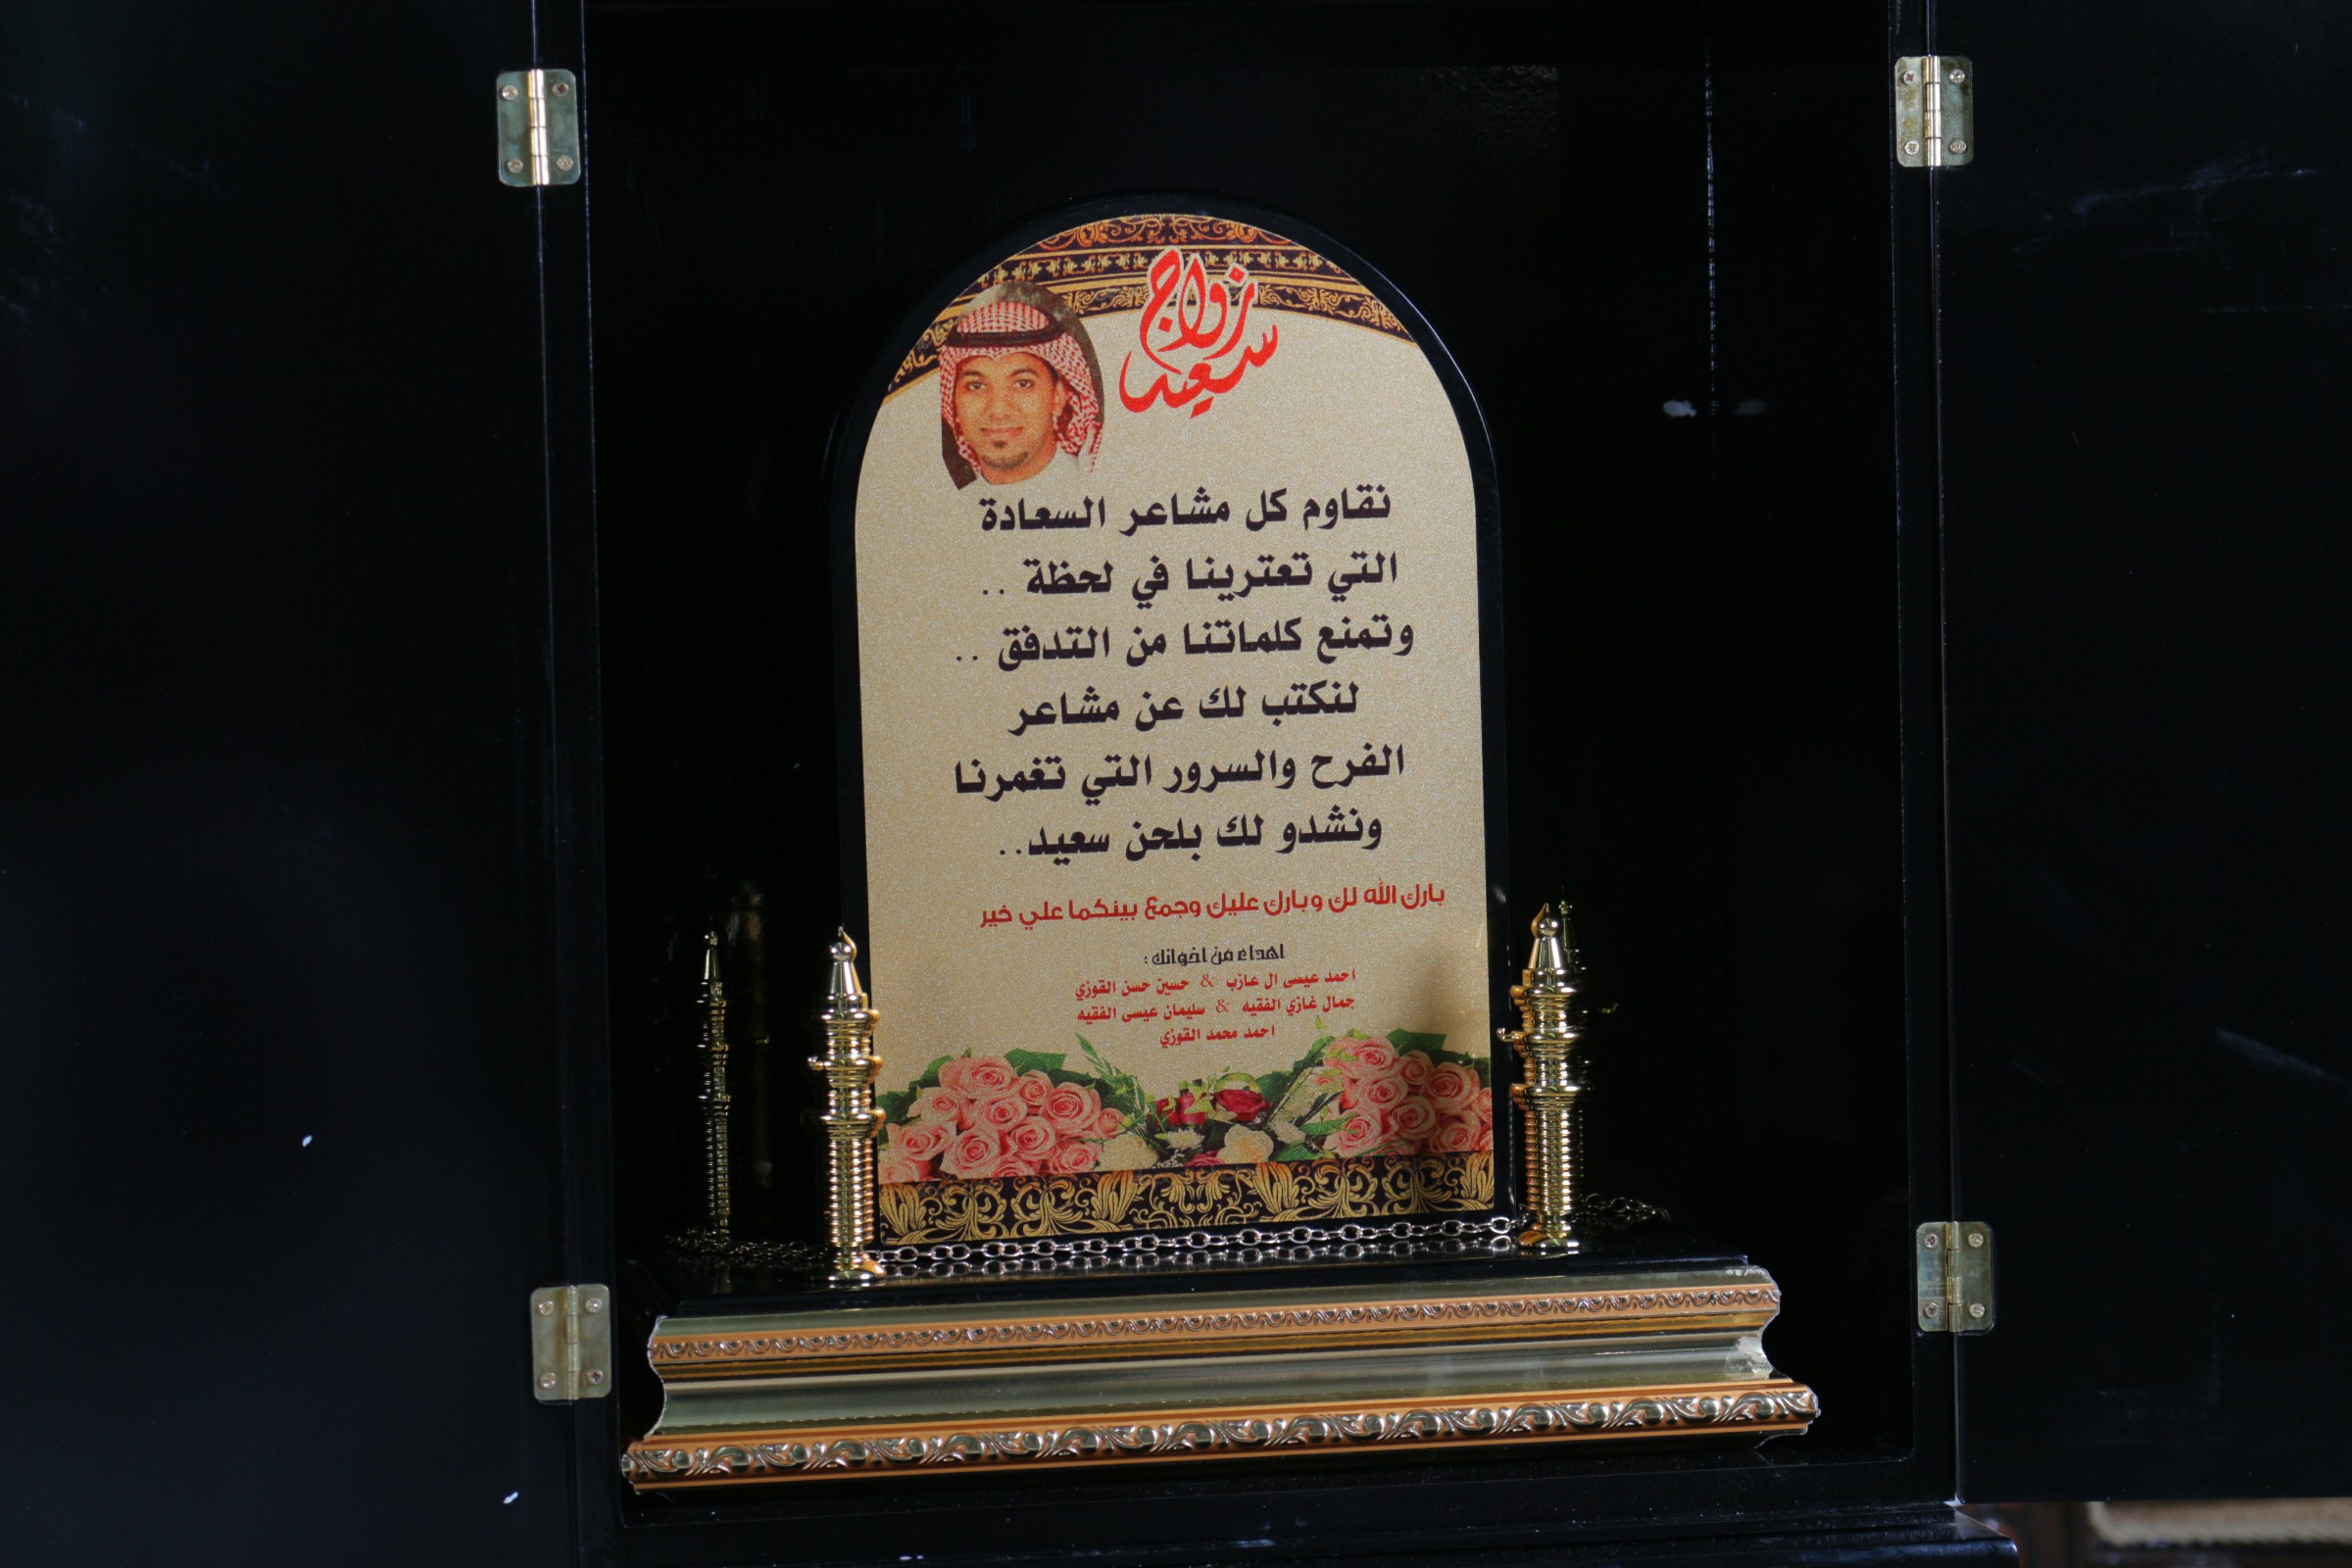 زواج
سعيد
نقاوم كل مشاعر السعادة
التي تعترينا في لحظة ..
وتمنع كلماتنا من التدفق ..
لنكتب لك عن مشاعر
الفرح والسرور التي تغمرنا
ونشدو لك بلحن سعيد..
بارك الله لك وبارك عليك وجمع بينكما علي خير
اهداء من اخوانك :
احمد عيسى ال عازب & حسين حسن القوزي
جمال غازي الفقيه & سليمان عيسى الفقيه
احمد محمد القوزي